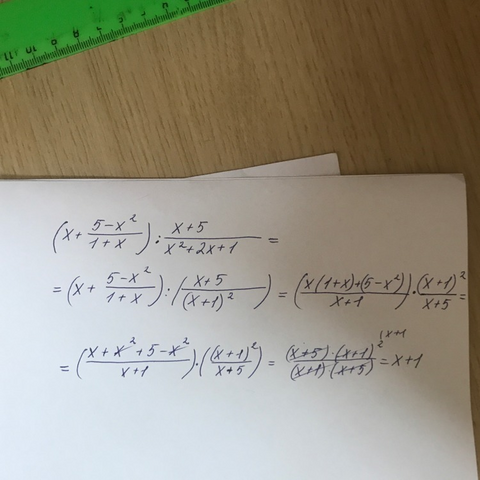 11 10 9 8 7 6 5
(x + (5-x²)/(1+x)) : (x+5)/(x²+2x+1) =
= (x + (5-x²)/(1+x)) : ((x+5)/(x+1)²) = ((x(1+x)+(5-x²))/(x+1)) · (x+1)²/(x+5) =
= ((x+x²+5-x²)/(x+1)) · ((x+1)²/(x+5)) = ((x+5)·(x+1)²)/((x+1)(x+5)) = x+1